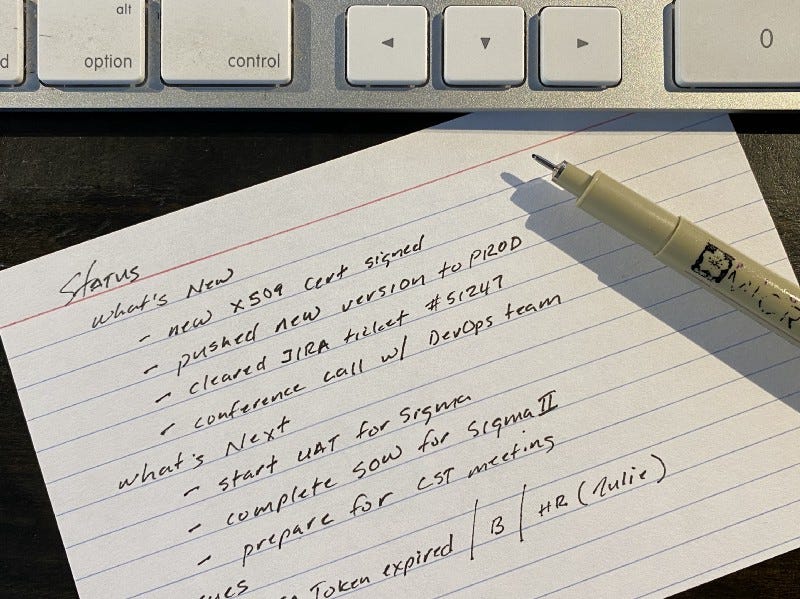 alt
option
control
0
Status
What's New
- new x509 cert signed
- pushed new version to PROD
- cleared JIRA ticket #51247
- conference call w/ DevOps team
What's Next
- start UAT for Sigma
- complete SOW for Sigma II
- prepare for CST meeting
Token expired | B | HR (Julie)